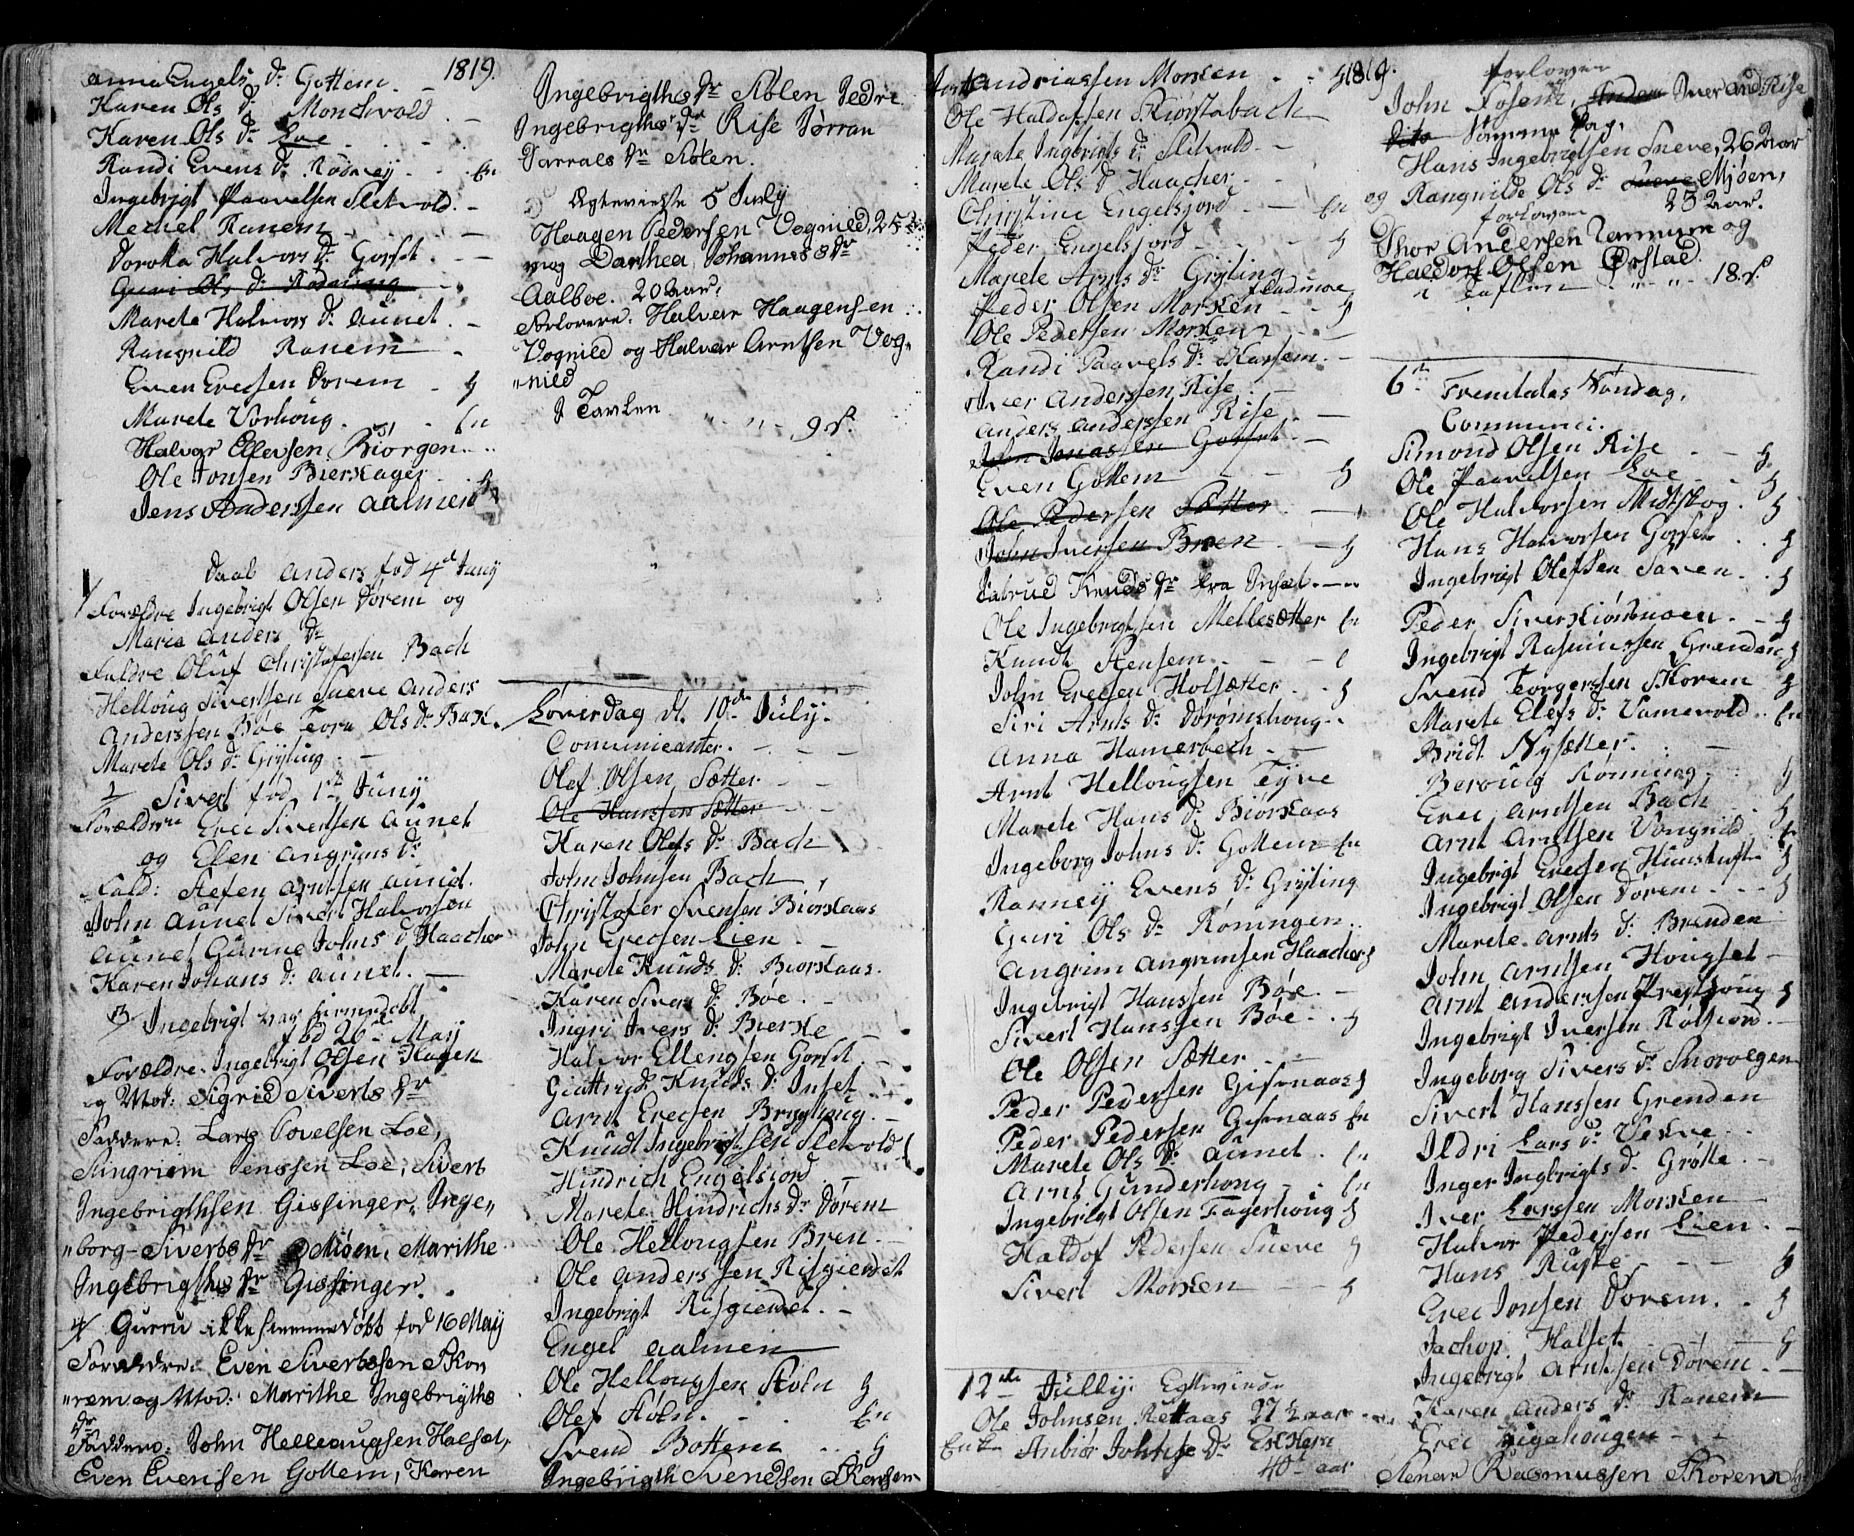 Anna Engels Dr Gottem - 1819.
Karen Ols Dr Mondsvold -
Karen Ols Dr Loe
Randi Evens Dr En
Ingebrigt Paavelsen Sletvold -
Mechel Ranem
Dorota Halvors Dr Gorset - -
Guri Ols Dr Rønning
Marete Halvors Dr Aunet -
Rangnild Ranem
Even Erecsen Dorem - g
Marete Vorhoug - En
Halvor Ellevsen Biorgen
Ole Jonsen Bierkager
Jens Anderssen Aalmen
Daab Anders fød 4de Juny
1/ Forældre Ingebrigt Olsen Dorem og
Maria Anders Dr
Faldre Oluf Christofersen Bach
Helloug Siverssen Sneve Anders
Anderssen Bøe Tora Ols Dr Bak.
Marete Ols Dr Gryting -
2/ Sivert fød 1te Juny
Forældre Erec Sivertsen Aunet
og Elen Angrims Dr
Fald: Stefen Arntsen Aunet.
John Aunet Sivert Halvorsen
Aunet Gurine Johns Dr Haacher
Karen Johans Dr Aunet. -
3/ Ingebrigt var hiemmedøbt
fød 26de Maij
Forældre. Ingebrigt Olsen Hagen
og Mod: Sigrid Siverts Dr
Faddere: Lars Povelsen Loe,
Jenssen Loe, Sivert
Ingebrigthsen Gissinger, Inge„
„borg Siverts Dr Miøen, Marithe
Ingebrigths Dr Gissinger.
4/ Gurru ikke hiemmedøbt fød 16 Maij
Forældre: Even Sivertssen Skor
„rem og Mod: Marithe Ingebrigths
Dr
Faddere: John Hellaugsen Halset,
Even Evensen Gottem, Karen
Ingebrigths Dr Stølen Pedre
Ingebrigths Dr Rise Jørran
Dr Stølen.
Egteviede 5 July
Haagen Pedersen Vognild, 25
mag Darthea Johannes Dr
Aalboe. 20 aar.
Forlovere: Halvar Haagensen
Vognild og Halvar Arntsen Vog„
„nild
I Tavlen „ „ - 9 s.
Løverdag d. 10de July.
Comunicanter. - - -
Olef Olsen Sætter - -
Ole Hanssen Sætter - -
Karen Olefs Dr Bach
John Johnsen Bach
Christofer Svensen Biorkaas
John Erecsen Lien -
Marete Knuds Dr Biorkaas.
Karen Sivers Dr Bøe -
Ingri Ivers Dr Bierke
Halvor Ellengsen Gorset -
Guttrud Knuds Dr Inset -
Arnt Erecsen Brygthoug. -
Knudt Ingebrigtsen Sletvold -
Hindrich Engelsjord -
Marete Hindrichs Dr Dorem
Ole Hellougsen Bren. -
Ole Anderssen Risgierdet
Ingebrigt Risgierdet. -
Engel Aalmen
Ole Hellougsen Støln g
Olef Støln. - - En
Svend Bottem - g
Ingebrigth Svendsen Skorsem
Andriassen Morken - - g 1819.
Ole Haldorsen Skiørstabach
Marate Ingbrigts Dr Sletvold. -
Marete Ols Dr Haacher -
Christine Engelsjord - - En
Peder Engelsjord - - - g
Marete Arnts Dr Gryting
Peder Olsen Morken - - g
Ole Pedersen Morken - -
Randi Paavels Dr Skorsem. -
Iver Anderssen Rise - -
Anders Anderssen Rise -
John Jonassen Gorset -
Even Gottem - - g
Ole Pedersen Sætter -
John Iversen Bren - - g
Siatrud Knuds Dr fra Inset -
Ole Ingebrigtsen Mellesætter En
Knudt Stensem - -
John Erecsen Holsætter - g
Siri Arnts Dr Drømshoug -
Anna Hamerbech -
Arnt Hellougsen Teyve
Marete Hans Dr Biorkaas
Ingeborg Johns Dr Gottem En
Ranney Evens Dr Gryting
Guri Ols Dr Roningen
Angrim Angrimsen Haacher g
Ingebrigt Hanssen Bøe. -
Sivert Hanssen Bøe - - g
Ole Olsen Sætter - -
Peder Pedersen Gisenaas g
Peder Pedersen Gisenaas En
Marete Ols Dr Aunet. - En
Arnt Gunderhoug - - En
Ingebrigt Olsen Fagerhoug g
Haldof Pedersen Sneve g
Sivert Morken - - g
12de Jully.
Ole Johnsen Rettaas 27 1/2 aar
Enke Anbiør Johnse Dr
40 aar
Forlover
John Iver And Rise
samme Dag.
Hans Ingebrigtsen Sneve, 26 aar
og Rangnilde Ols Dr Sneve Mjøen,
forlover 25 aar.
Thor Andersen Rønning og
Haldor Olsen Ørstad.
i Taflen „ „ - 18. s.
6te Trenitatis Søndag.
Communi.
Simond Olsen Rise - - g
Ole Paavelsen Loe - - g
Ole Halvorsen Midtskog. g
Hans Halvorsen Gorset . . g
Ingebrigt Olefsen Saven. . g
Peder Siverskiørsmoen. - g
Ingebrigt Rasmussen Grenden g
Svend Torgerssen Skorem g
Marete Elefs Dr Vamevold. En
Bridt Nysætter. -
Beroug Rønning
Erec Arntsen Bach . g
Arnt Arntsen Vongnild En
Ingebrigt Erecsen Hinskuft - g
Ingebrigt Olsen Dorem - - g
Marete Arnts Dr Brenden
John Arntsen Hougset -
Arnt Anderssen Presthoug g
Ingebrigt Iversen Rolsiord. -
Ingeborg Sivers Dr Snorvegen
Sivert Hanssen Grenden
Ildri Lars Dr Vekve -
Inger Ingbrigts Dr Grøtte. -
Iver Larssen Morken -
Halvor Pedersen Lien. -
Hans Ryste - - - g
Erec Jonsen Dorem. - g
Jachop Halset - - g
Ingebrigt Arntssen Dorem. -
Karen Anders Dr Ranem
Erec - -
Stener Rasmussen Skorem